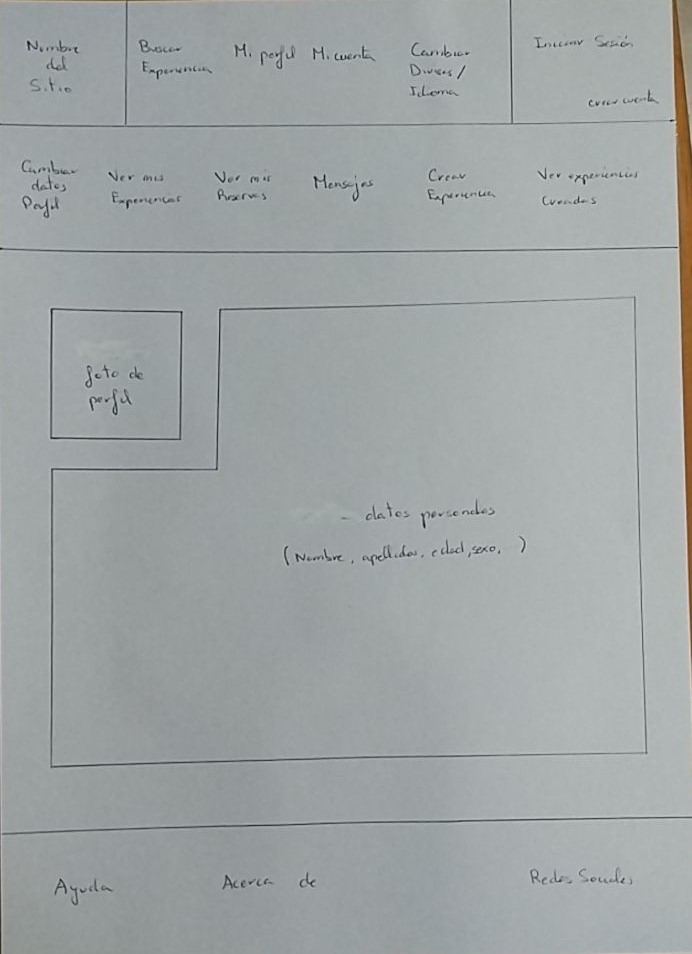 Nombre
del
Sitio
Buscar
Experiencia
Mi perfil
Mi cuenta
Cambiar
Divisas/
Idioma
Iniciar Sesión
crear cuenta
Cambiar
datos
Perfil
Ver mis
Experiencias
Ver mis
Reservas
Mensajes
Crear
Experiencia
Ver experiencias
Creadas
foto de
perfil
- datos personales
(Nombre, apellidos, edad, sexo, )
Ayuda
Acerca de
Redes Sociales